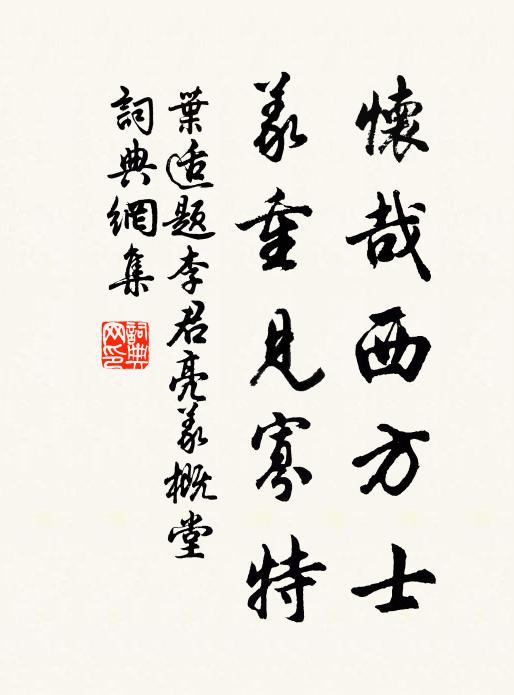 懷哉西方士
義重見寡特
葉适題李君亮義概堂
詞典網集
詞典網印